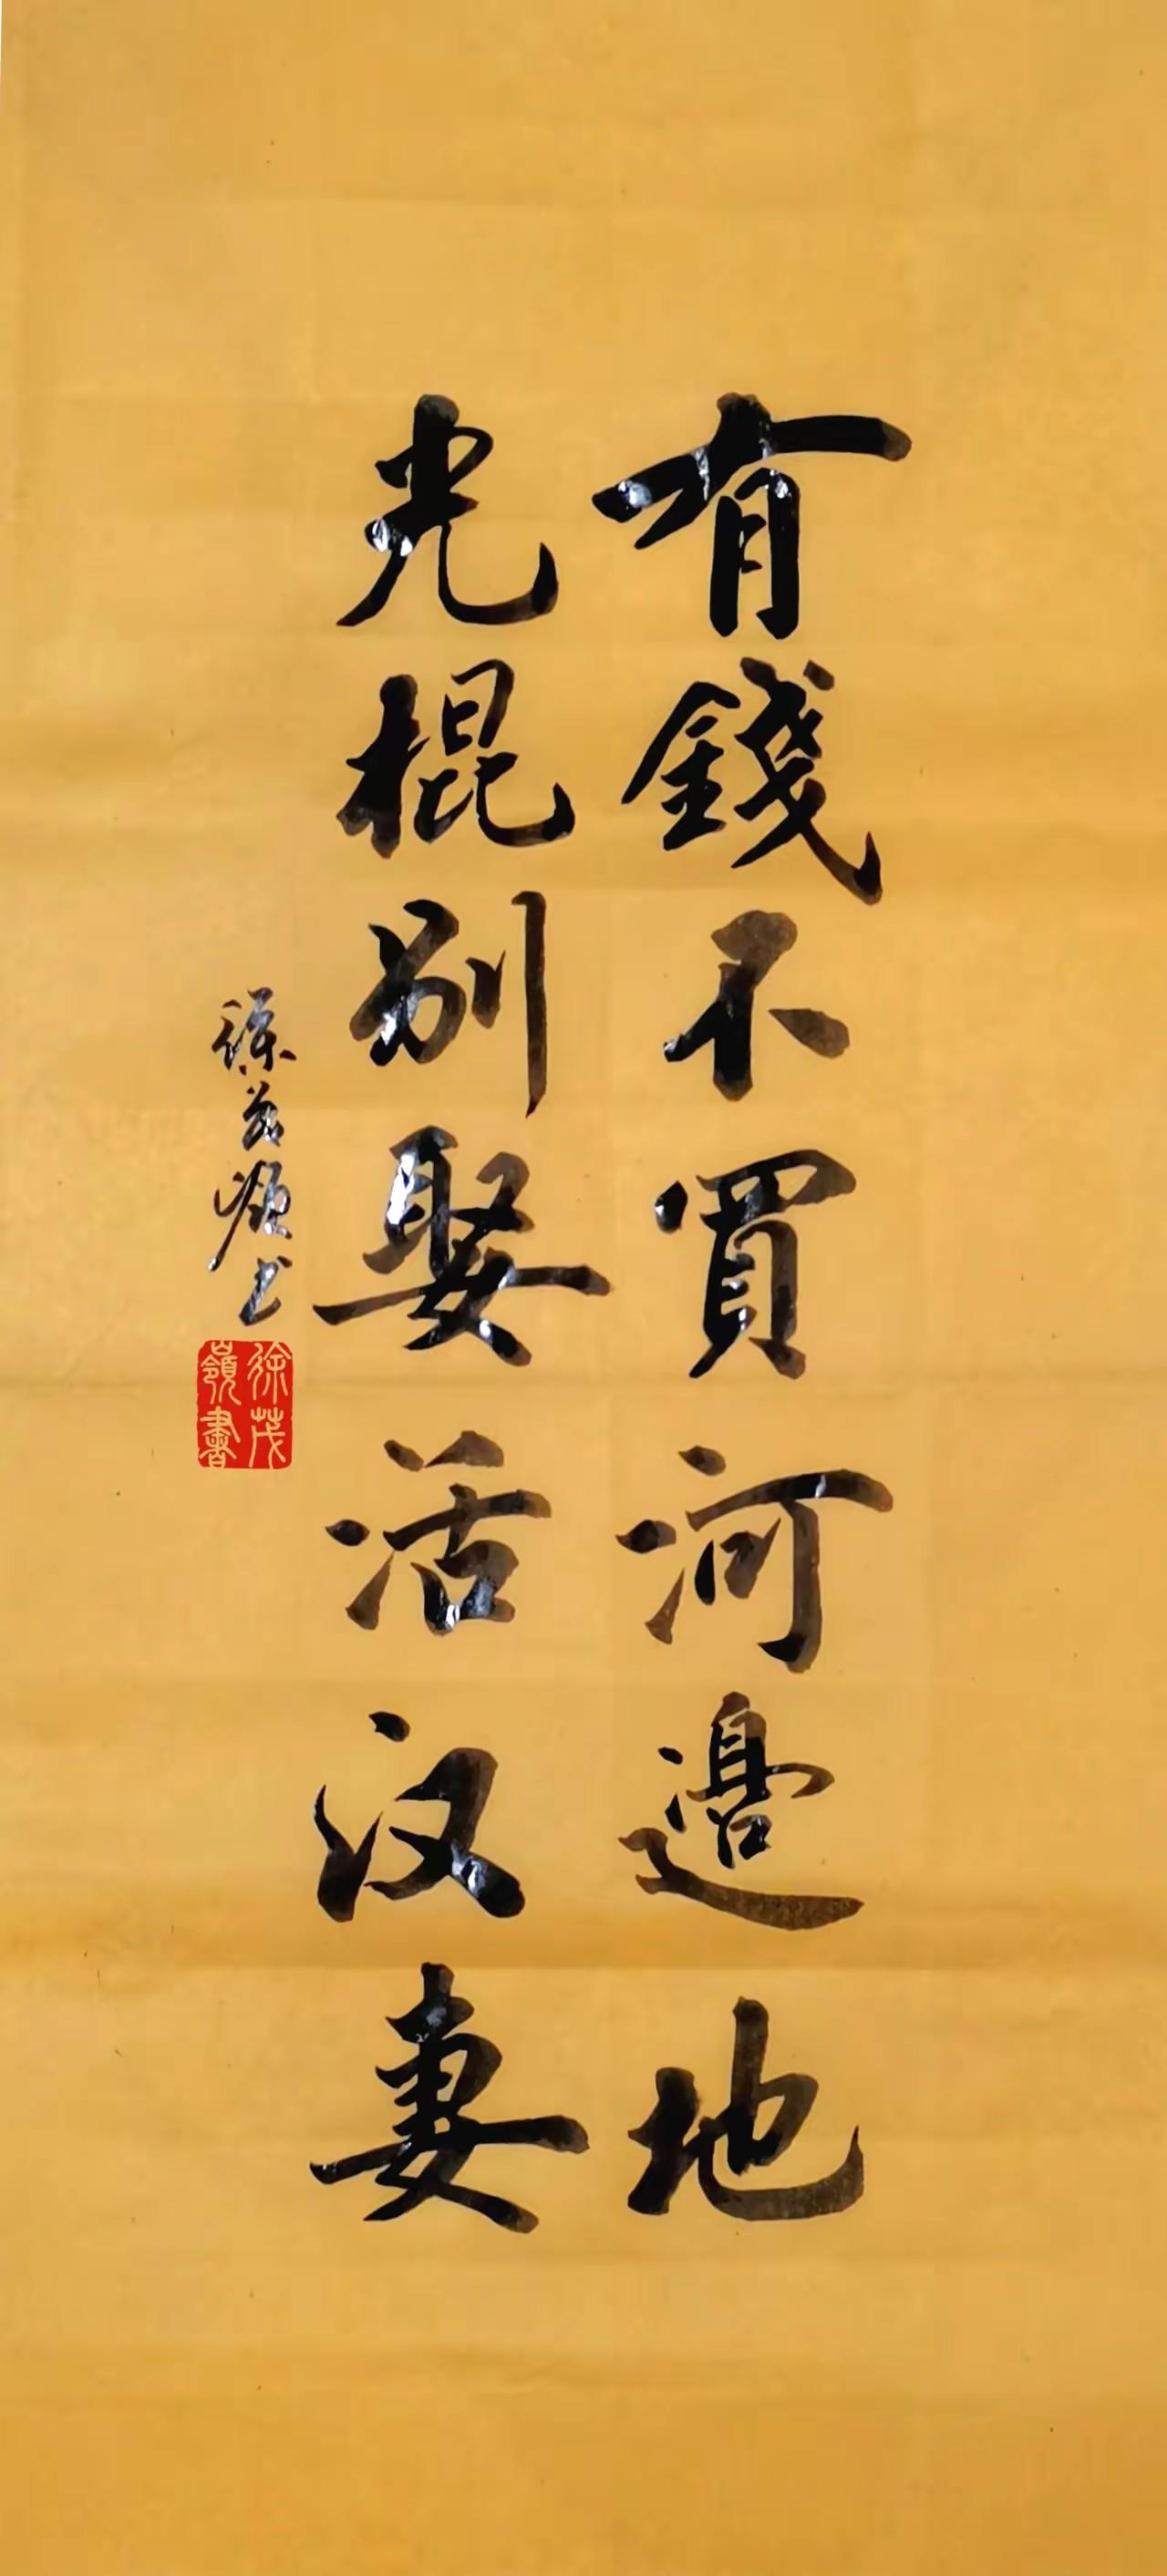 有錢不買河邉地
光棍别娶活汉妻
徐茂嶺书
徐茂
嶺書